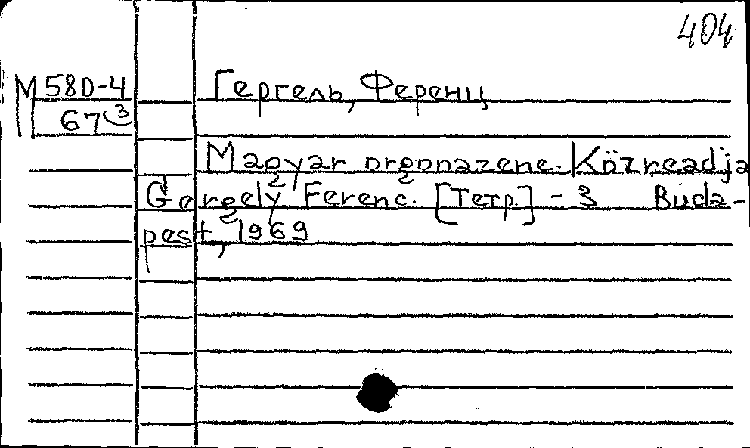 404
М58D-4 Гергель, Ференц
67
Magyar orgonazene. Közreadja
Gergely Ferenc. [Тетр.] - 3 Buda-
pest, 1969